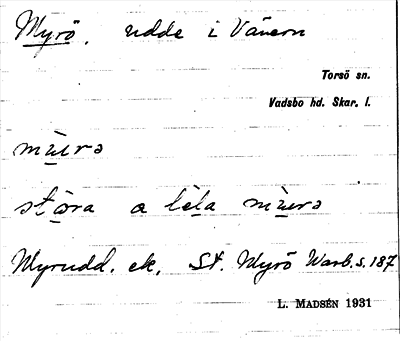 Myrö, udde i Vänern
Torsö sn.
Vadsbo hd. Skar. l.
mùerə
stɷ̀ra a lɩ̀la mùerə
Myrudd. ek. St. Myrö Warb. s. 187
L. Madsén 1931